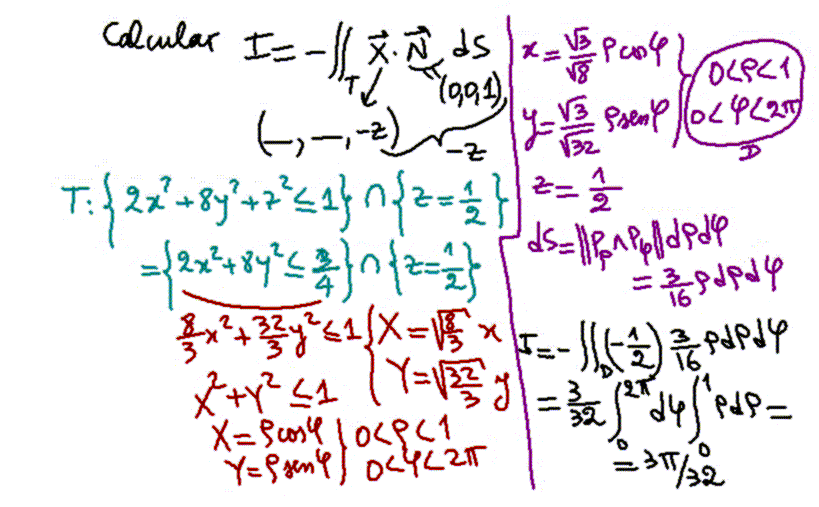 Calcular I = -∬_T X⃗ · N⃗ dS
(0,0,1)
(—, —, -z)
-z
T: {2x² + 8y² + z² ≤ 1} ∩ {z = 1/2}
= {2x² + 8y² ≤ 3/4} ∩ {z = 1/2}
8/3 x² + 32/3 y² ≤ 1 { X = √(8/3) x
Y = √(32/3) y
X² + Y² ≤ 1
X = ρcosφ } 0 < ρ < 1
Y = ρsenφ } 0 < φ < 2π
x = √3/√8 ρ cosφ } 0 < ρ < 1
y = √3/√32 ρ senφ } 0 < φ < 2π
D
z = 1/2
dS = ||P_ρ ∧ P_φ|| dρdφ
= 3/16 ρ dρ dφ
I = -∬_D (-1/2) 3/16 ρ dρ dφ
= 3/32 ∫_0^{2π} dφ ∫_0^1 ρ dρ =
= 3π/32